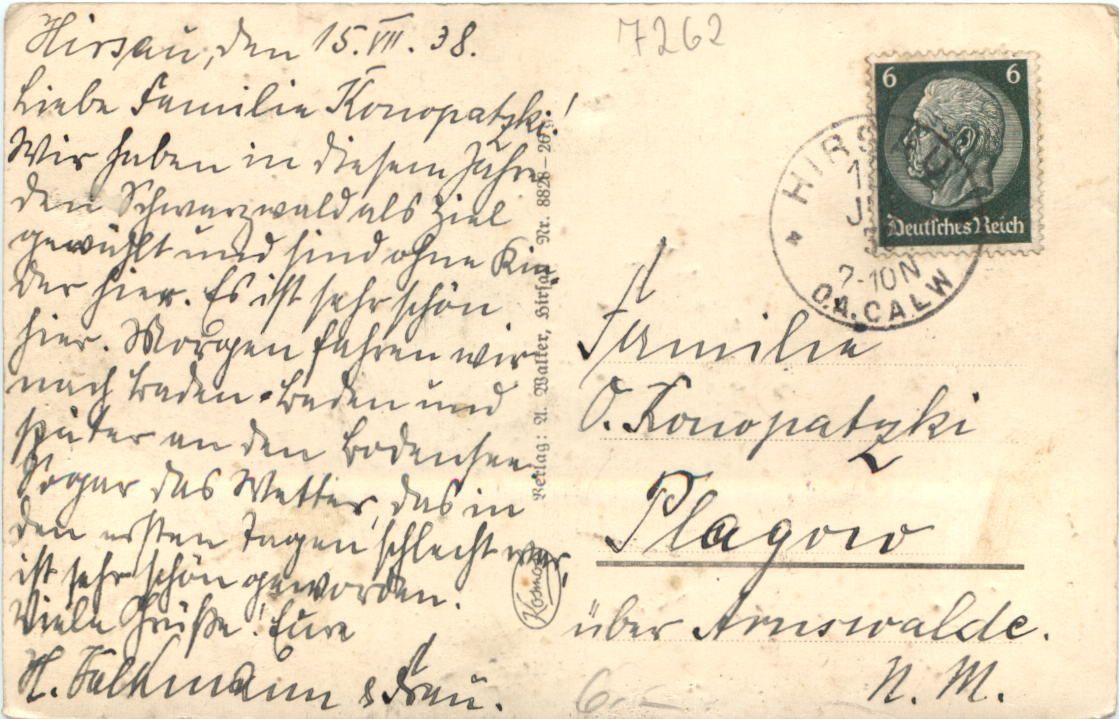 Hirsau, den 15.VII.38.
Liebe Familie Konopatzki!
Wir haben in diesem Jahre
den Schwarzwald als Ziel
gewählt und sind ohne Kin-
der hier. Es ist sehr schön
hier. Morgen fahren wir
nach Baden-Baden und
später an den Bodensee.
Sogar das Wetter, das in
den ersten Tagen schlecht war,
ist sehr schön geworden.
Viele Grüße! Eure
H. Falkmann & Frau.
7262
Verlag: A. Walter, Hirsau Nr. 8828-20
Kosmos
6 6
Deutsches Reich
HIRSAU
O.A.CALW
7-10N
Familie
O. Konopatzki
Plagow
über Arnswalde.
N. M.
6.—